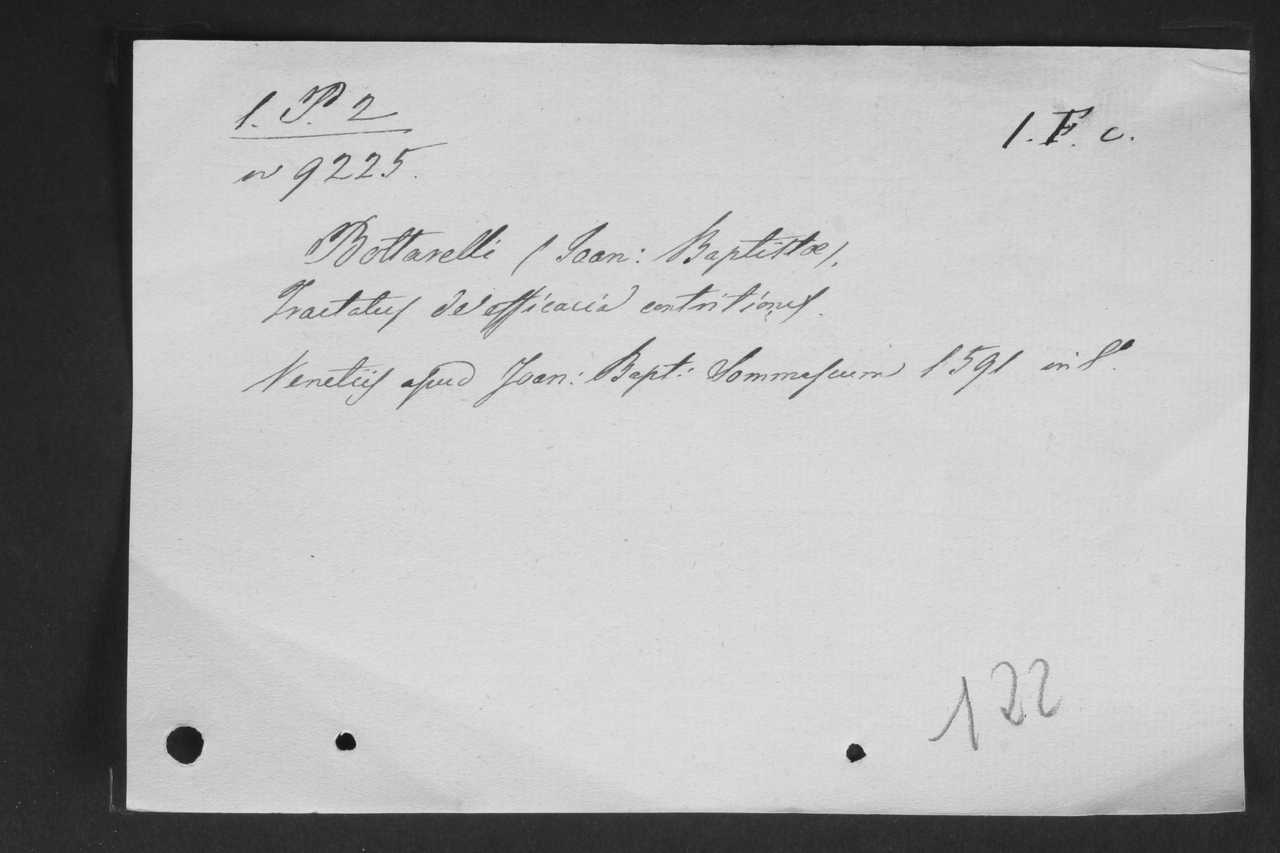 1. P. 2
n 9225.
1. F. c.
Bottarelli (Joan: Baptistæ).
Tractatus de efficacia contritionis.
Venetiis apud Joan: Bapt: Sommascum 1591 in 8°.
122